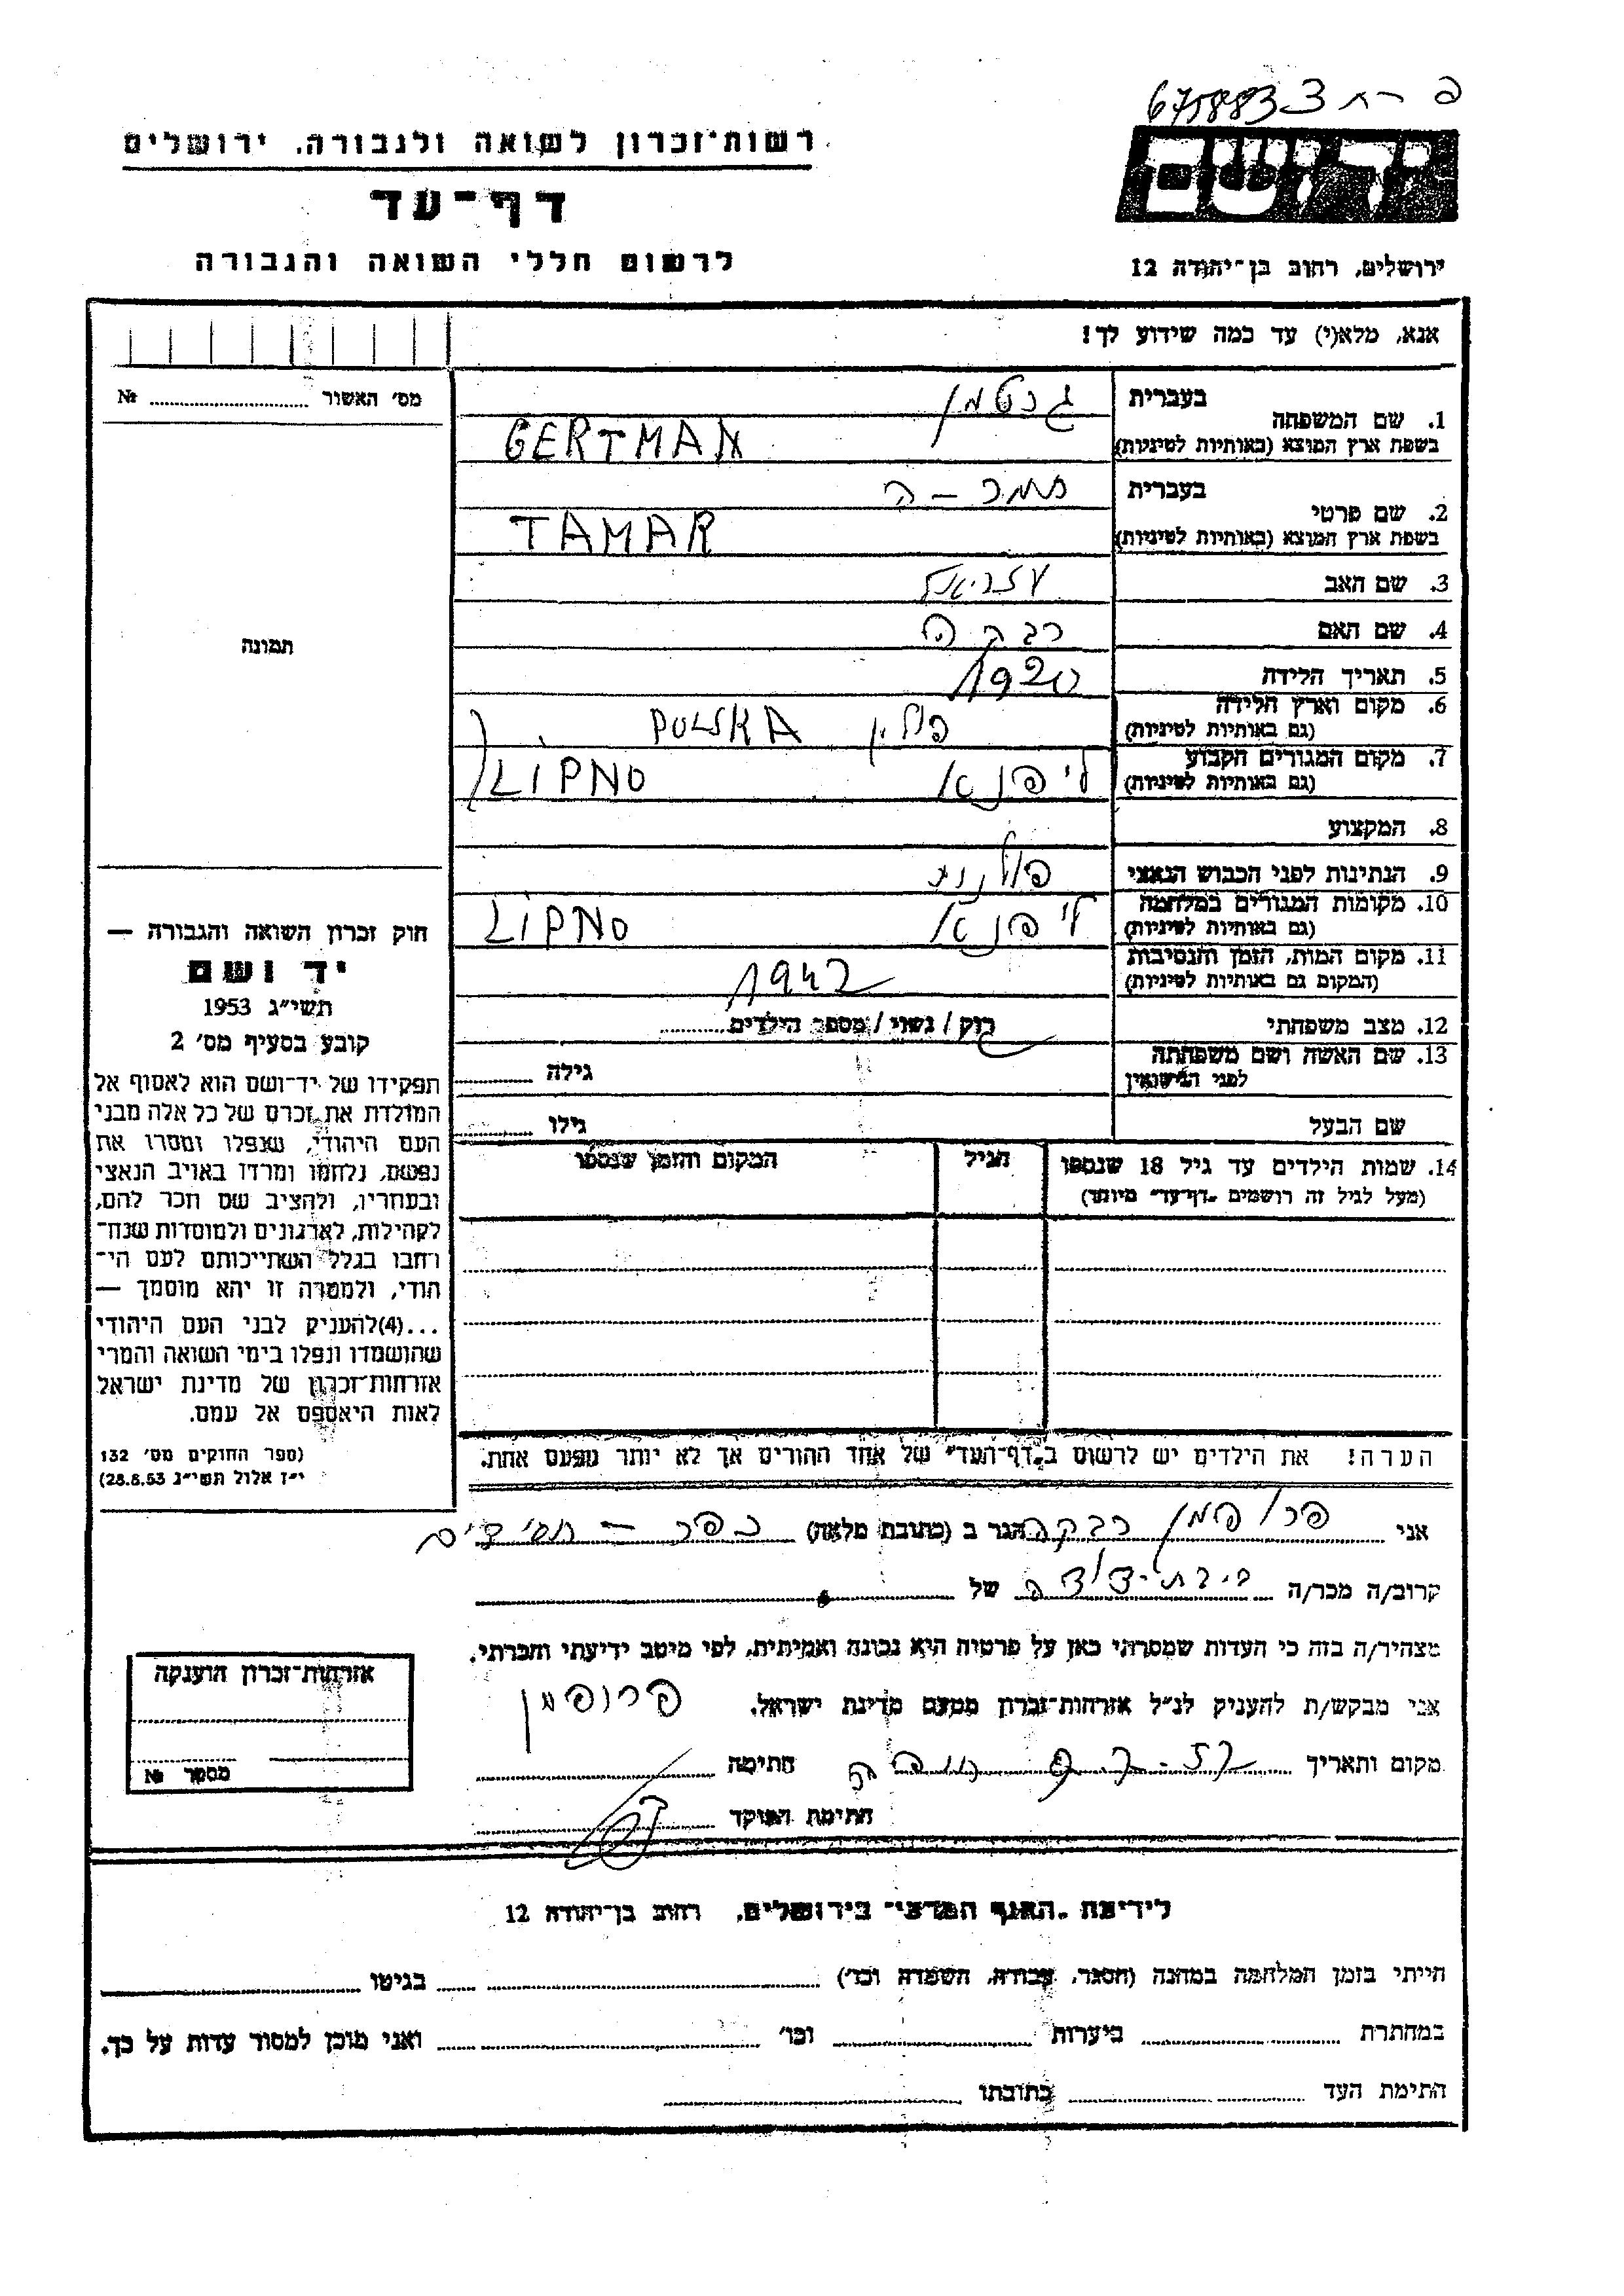 675883 ב
יד ושם
רשות-זכרון לשואה ולגבורה, ירושלים
דף-עד
לרשום חללי השואה והגבורה
ירושלים, רחוב בן-יהודה 12
אנא, מלא(י) עד כמה שידוע לך!
1. שם המשפחה
בעברית גרטמן
בשפת ארץ המוצא (באותיות לטיניות) GERTMAN
2. שם פרטי
בעברית תמר - ה
בשפת ארץ המוצא (באותיות לטיניות) TAMAR
3. שם האב עזריאל
4. שם האם רבקה
5. תאריך הלידה 1920
6. מקום וארץ הלידה
(גם באותיות לטיניות) פולין POLSKA
7. מקום המגורים הקבוע
(גם באותיות לטיניות) ליפנא LIPNO
8. המקצוע
9. הנתינות לפני הכבוש הנאצי פולנית
10. מקומות המגורים במלחמה
(גם באותיות לטיניות) ליפנא LIPNO
11. מקום המות, הזמן והנסיבות
(המקום גם באותיות לטיניות) 1942
12. מצב משפחתי רוק / נשוי / מספר הילדים
13. שם האשה ושם משפחתה
לפני הנישואין גילה
שם הבעל גילו
14. שמות הילדים עד גיל 18 שנספו
(מעל לגיל זה רושמים "דף-עד" מיוחד)
הגיל
המקום והזמן שנספו
הערה! את הילדים יש לרשום ב"דף-העד" של אחד ההורים אך לא יותר מפעם אחת.
מס' האשור № 
תמונה
חוק זכרון השואה והגבורה —
יד ושם
תשי"ג 1953
קובע בסעיף מס' 2
תפקידו של יד-ושם הוא לאסוף אל
המולדת את זכרם של כל אלה מבני
העם היהודי, שנפלו ומסרו את
נפשם, נלחמו ומרדו באויב הנאצי
ובעוזריו, ולהציב שם וזכר להם,
לקהילות, לארגונים ולמוסדות שנח-
רבו בגלל השתייכותם לעם הי-
הודי, ולמטרה זו יהא מוסמך —
...(4) להעניק לבני העם היהודי
שהושמדו ונפלו בימי השואה והמרי
אזרחות-זכרון של מדינת ישראל
לאות היאספם אל עמם.
(ספר החוקים מס' 132
י"ז אלול תשי"ג 28.8.53)
אני פרופמן רבקה הגר ב (כתובת מלאה) כפר - חסידים
קרוב/ה מכר/ה בת-דודה של
מצהיר/ה בזה כי העדות שמסרתי כאן על פרטיה היא נכונה ואמיתית, לפי מיטב ידיעתי והכרתי.
אני מבקש/ת להעניק לנ"ל אזרחות-זכרון מטעם מדינת ישראל. פרופמן
מקום ותאריך חתימה
חתימת הפוקד
אזרחות-זכרון הוענקה
מספר №
לידיעת "האגף המדעי" בירושלים, רחוב בן-יהודה 12
הייתי בזמן המלחמה במחנה (הסגר, עבודה, השמדה וכו') בגיטו
במחתרת ביערות וכו' ואני מוכן למסור עדות על כך.
חתימת העד כתובתו